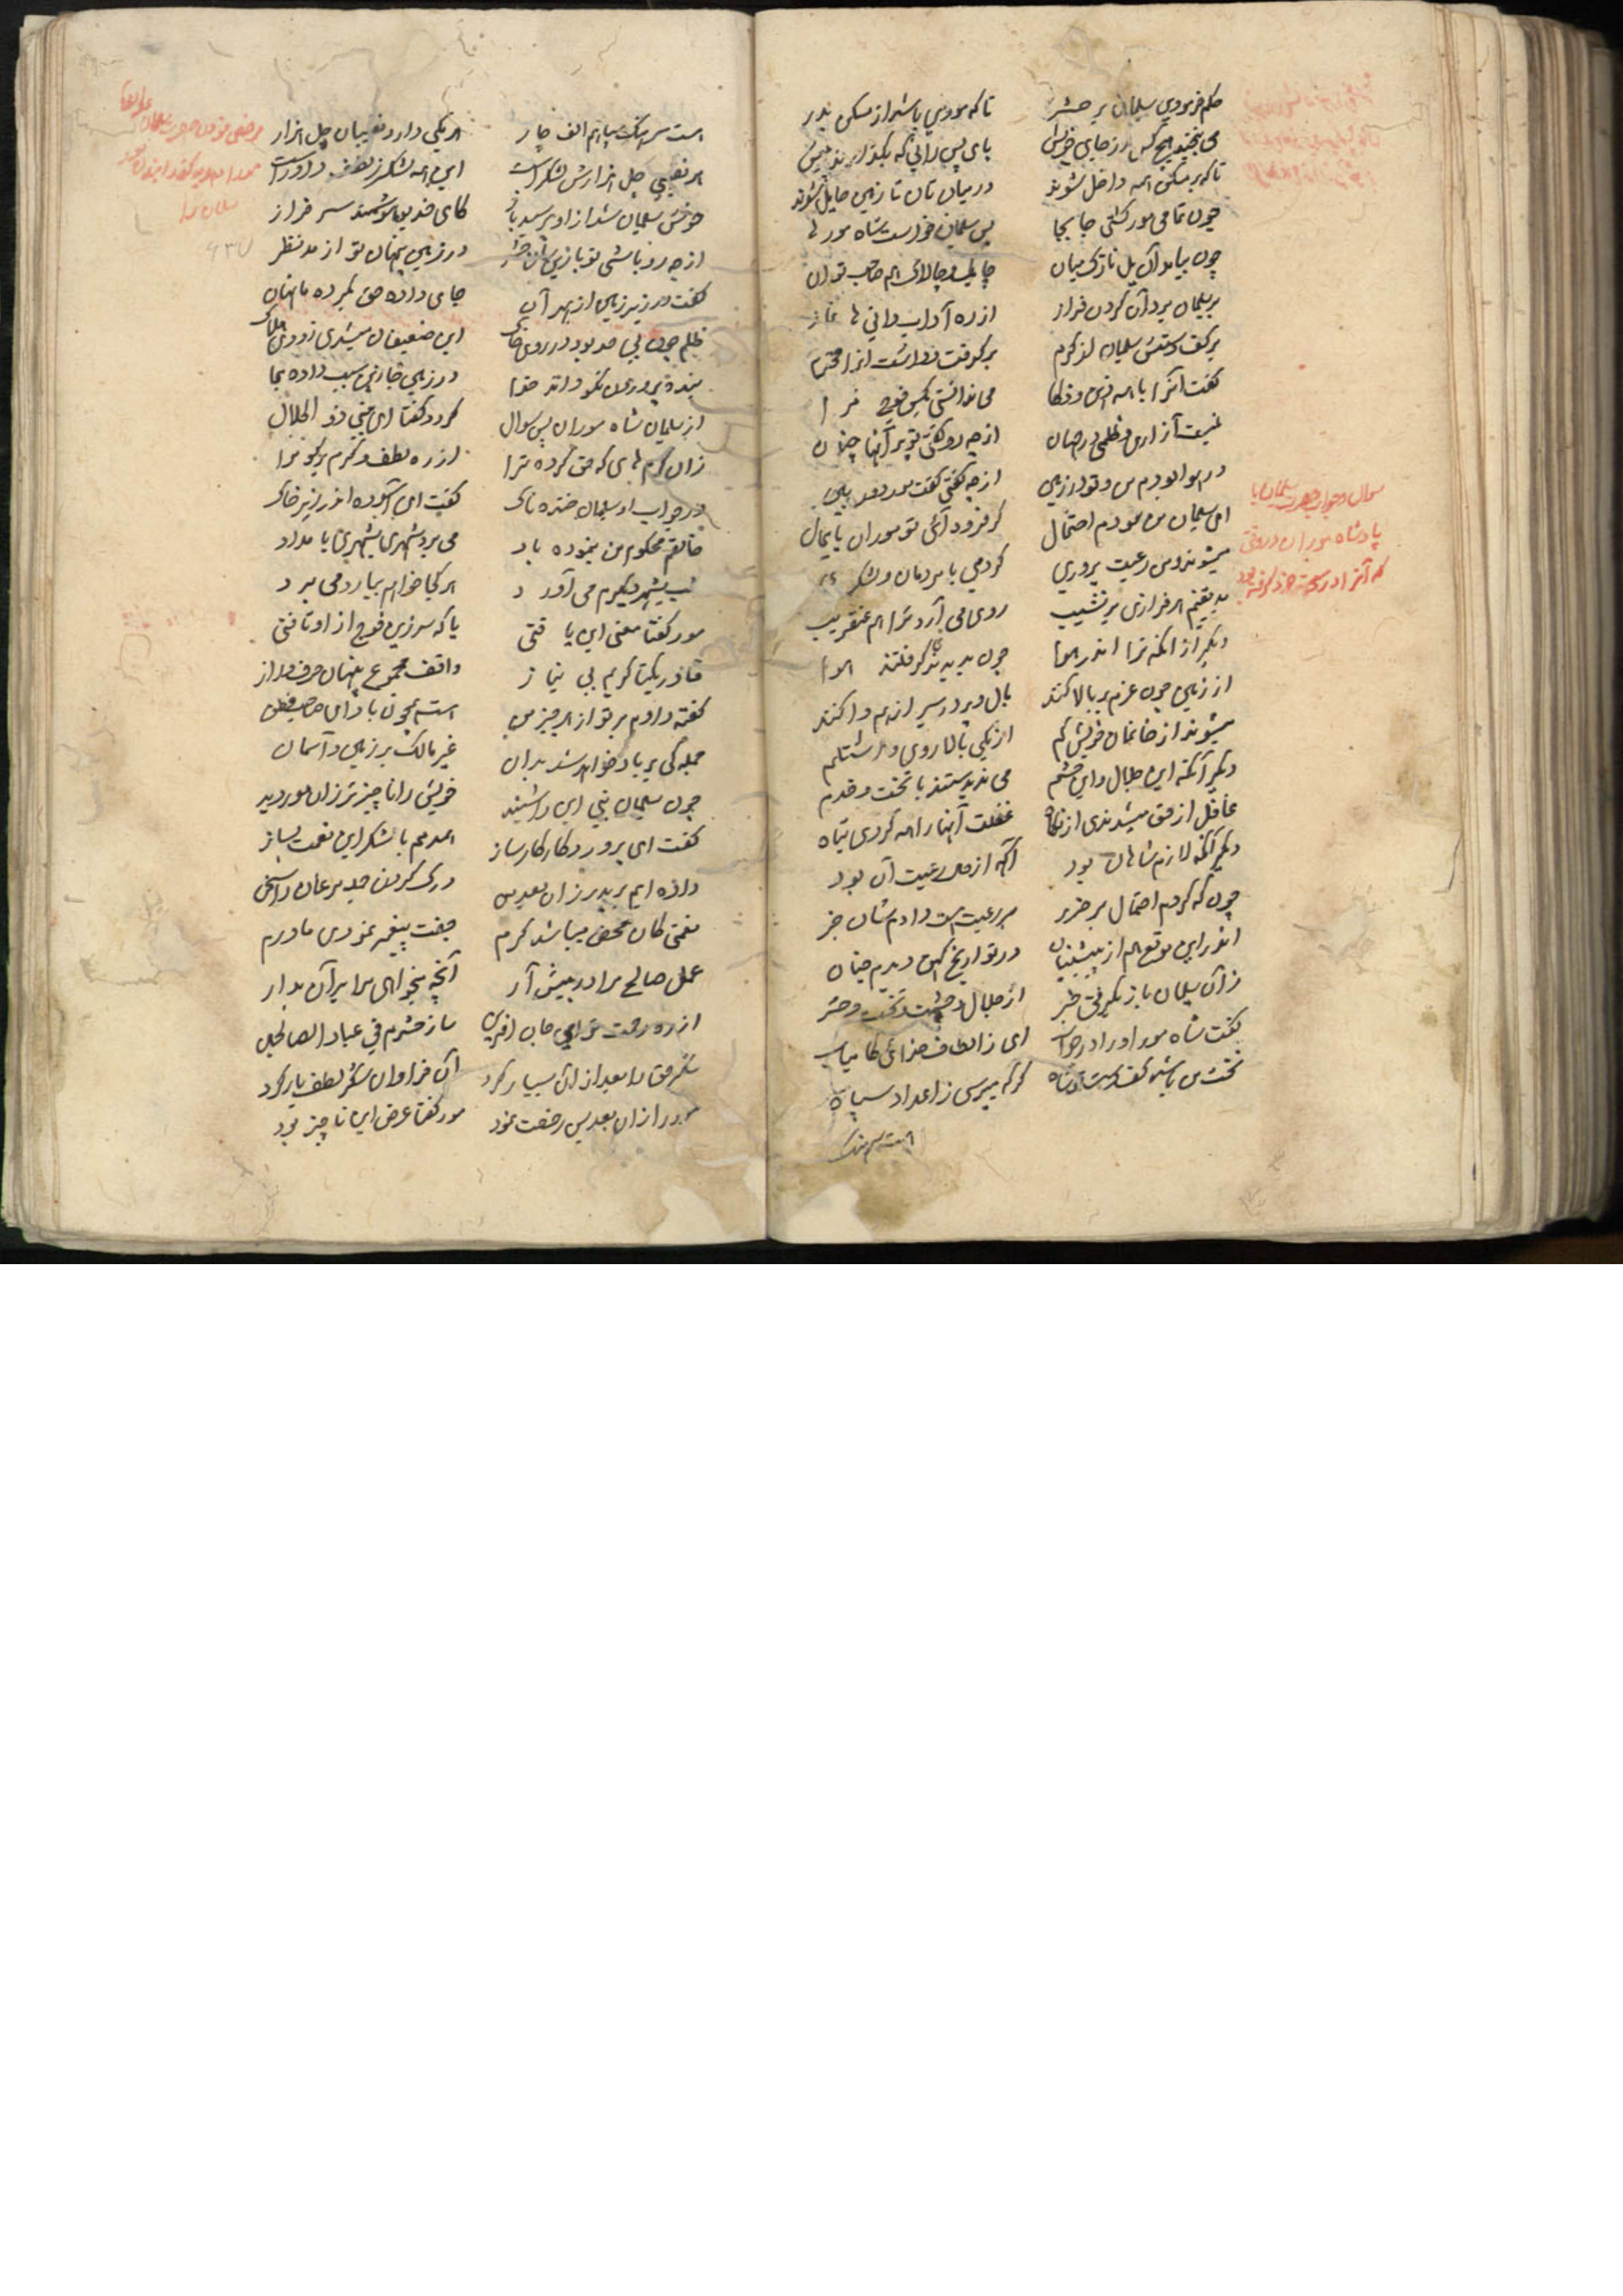 حکم فرمودی سلیمان بر حشر
تا که موری باشد از مسکن بدر
می نجنبد هیچکس از جای خویش
پای پس رانی که نگذارند پیش
تا که بر مسکن همه داخل شوند
در میان تان تا زمین حایل شوند
چون تمامی مور گشتی جا بجا
پس سلیمان خواست شاه مور را
چون بیامد آن یل نازک میان
چابک و چالاک هم صاحب توان
بر سلیمان برد آن گردن فراز
از ره آداب دانی ها نماز
بر کف دستش سلیمان از کرم
بر گرفت و داشت او را محترم
گفت آنگه با همه فهم و ذکا
می ندانستی مگر فوج مرا
نیست آزاری و ظلمی در جهان
از چه رو گفتی تو بر آنها چنان
در هوا بودم من و تو در زمین
از چه گفتی گفت مور دوربین
ای سلیمان من نمودم احتمال
گر فرود آئی تو موران پایمال
میشوند و من رعیت پروری
کردمی با مردمان و لشکری
بد یقینم هر فرازی بر نشیب
روی می آرد ترا هم عنقریب
دیگر از آنکه ترا اندر هوا
چون بدیدندی گرفتند هوا
از زمین چون عزم بر بالا کنند
بال و پر در سیر از هم وا کنند
میشوند از خانمان خویش گم
از یکی بالا روی و اشتلم
دیگر آنکه این جلال و این حشم
می ندیدستند با تخت و قدم
غافل از حق میشدندی از نگاه
غفلت آنها را همه کردی تباه
دیگر آنکه لازم شاهان بود
آگه از حال رعیت آن بود
چون که کردم احتمال بر ضرر
بر رعیت هست دادم شان خبر
اندر این موقع هم از پیشینیان
در تواریخ کهن دیدم چنان
زان سلیمان باز بگرفتی خبر
از جلال و حشمت و تخت و حشر
گفت شاه مور او را در جواب
ای ز الطاف خدائی کامیاب
تخت من باشد کف دست تو شاه
گر که میپرسی ز اعداد سپاه
سوال و جواب حضرت سلیمان با
پادشاه موران در وقتی
که آنرا در دست خود گرفته بود
هست سرهنگ
هست سرهنگ سپاهم الف چار
هر یکی دارد نقیبان چل هزار
هر نقیبی چل هزارش لشکر است
این همه لشکر ز لطف داور است
خوش سلیمان شد از او پرسید باز
کای خدیو هوشمند سرفراز
از چه رو باشی تو با این سان حشر
در زمین پنهان تو از مد نظر
گفت در زیر زمین از بهر آن
جای داده حق بکرده ما نهان
ظلم چون بی حد بود در روی خاک
این ضعیفان میشدی زودی هلاک
بنده پروردن نکو داند خدا
در زمین خازین سبب داده بجا
از سلیمان شاه موران پس سوال
کرد و گفتا ای نبی ذوالجلال
زان کرم های که حق کرده ترا
از ره لطف و کرم بر گو مرا
در جواب او سلیمان خنده ناک
گفت ای آسوده اندر زیر خاک
خالقم محکوم من بنموده باد
می برد شهری بشهری بامداد
شب بشهر دیگرم می آورد
هر کجا خواهم بیارد می برد
مور گفتا معنی این یافتی
یا که سر زین فوج از او تافتی
قادر یکتا کریم بی نیاز
واقف مجموع پنهان حرف و راز
گفته دادم بر تو از هر چیز من
هست همچون باد ای صاحب فطن
جمله گی بر باد خواهد شد بدان
غیر مالک بر زمین و آسمان
چون سلیمان نبی این را شنید
خویش را ناچیزتر زان مور دید
گفت ای پروردگار کارساز
همدمم با شکر این نعمت بساز
داده ایم بر پدر زان بعد من
درک کردن حد مرغان را سخن
نعمتی کان محض میباشد کرم
جفت پیغمبر نمودی مادرم
عمل صالح مرا در پیش آر
آنچه بخواهی مرا بر آن بدار
از ره رحمت تو ای جان آفرین
ساز حشرم فی عباد الصالحین
شکر حق را بعد از این بسیار کرد
آن فراوان شکر لطف یار کرد
مور را زان بعد پس رخصت نمود
مور گفتا عرض این ناچیز بود
۹۳۷